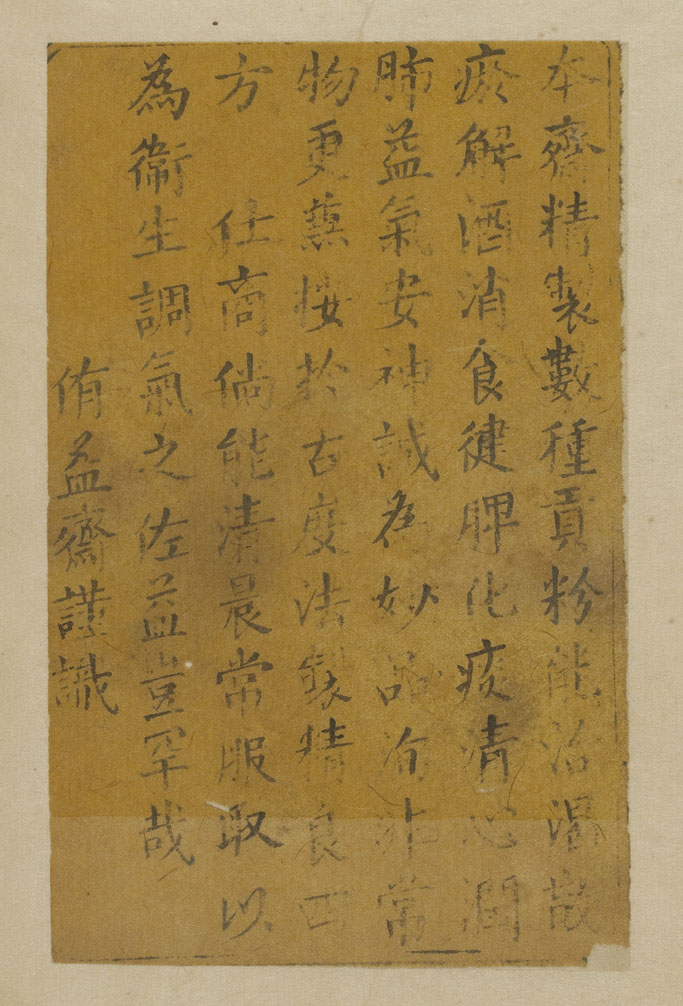 本齋精製數種貢粉能治渴散
瘀解酒消食健脾化痰清心潤
肺益氣安神誠為妙品洵非常
物更蒸按於古度法製精良四
方　仕商倘能清晨常服取以
為衞生調氣之佐益豈罕哉
侑益齋謹識